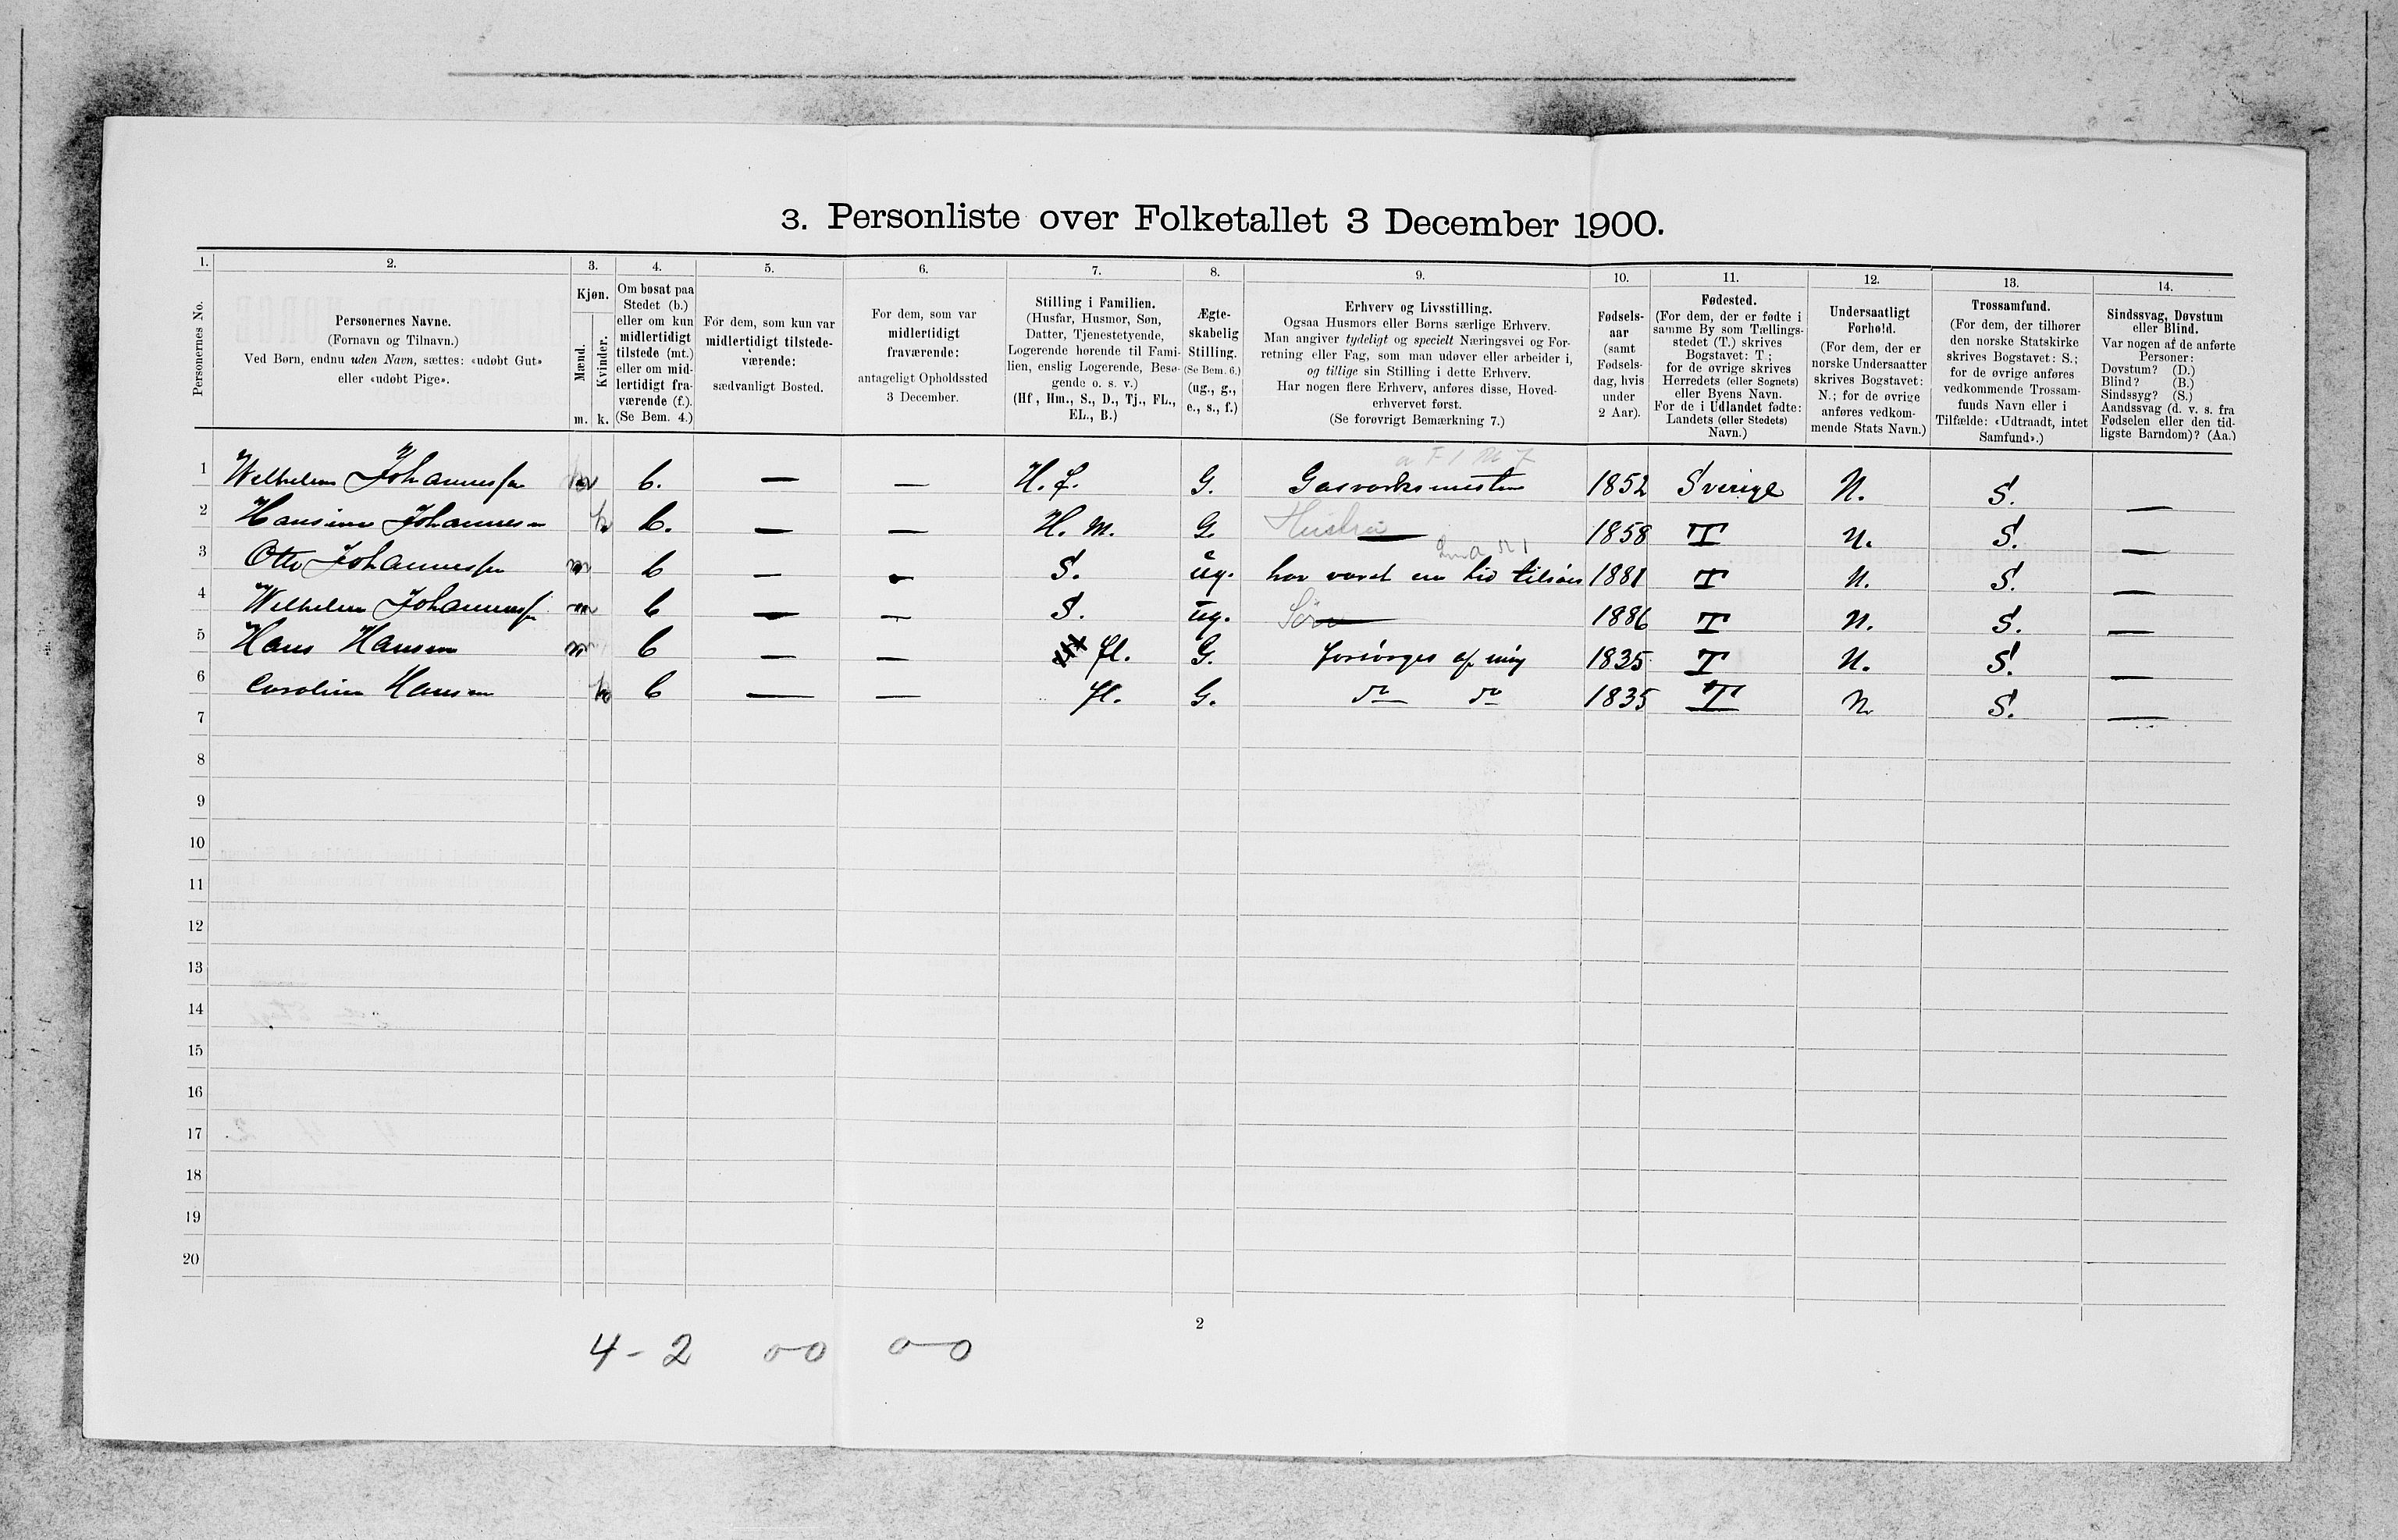 3. Personliste over Folketallet 3 December 1900.
1. 2. 3. 4. 5. 6. 7. 8. 9. 10. 11. 12. 13. 14.
Personernes No.
Personernes Navne.
(Fornavn og Tilnavn.)
Ved Børn, endnu uden Navn, sættes: «udøbt Gut»
eller «udøbt Pige».
Kjøn.
Mænd.
Kvinder.
m. k.
Om bosat paa
Stedet (b.)
eller om kun
midlertidigt
tilstede (mt.)
eller om mid-
lertidigt fra-
værende (f.).
(Se Bem. 4.)
For dem, som kun var
midlertidigt tilstede-
værende:
sædvanligt Bosted.
For dem, som var
midlertidigt
fraværende:
antageligt Opholdssted
3 December.
Stilling i Familien.
(Husfar, Husmor, Søn,
Datter, Tjenestetyende,
Logerende hørende til Fami-
lien, enslig Logerende, Besø-
gende o. s. v.)
(Hf, Hm., S., D., Tj., FL.,
EL., B.)
Ægte-
skabelig
Stilling.
(Se Bem. 6.)
(ug., g.,
e., s., f.)
Erhverv og Livsstilling.
Ogsaa Husmors eller Børns særlige Erhverv.
Man angiver tydeligt og specielt Næringsvei og For-
retning eller Fag, som man udøver eller arbeider i,
og tillige sin Stilling i dette Erhverv.
Har nogen flere Erhverv, anføres disse, Hoved-
erhvervet først.
(Se forøvrigt Bemærkning 7.)
Fødsels-
aar
(samt
Fødsels-
dag, hvis
under
2 Aar).
Fødested.
(For dem, der er fødte i
samme By som Tællings-
stedet (T.) skrives
Bogstavet: T;
for de øvrige skrives
Herredets (eller Sognets)
eller Byens Navn.
For de i Udlandet fødte:
Landets (eller Stedets)
Navn.)
Undersaatligt
Forhold.
(For dem, der er
norske Undersaatter
skrives Bogstavet:
N.; for de øvrige
anføres vedkom-
mende Stats Navn.)
Trossamfund.
(For dem, der tilhører
den norske Statskirke
skrives Bogstavet: S.;
for de øvrige anføres
vedkommende Trossam-
funds Navn eller i
Tilfælde: «Udtraadt, intet
Samfund».)
Sindssvag, Døvstum
eller Blind.
Var nogen af de anførte
Personer:
Døvstum? (D.)
Blind? (B.)
Sindssyg? (S.)
Aandssvag (d. v. s. fra
Fødselen eller den tid-
ligste Barndom)? (Aa.)
1 Wilhelm Johannessen m b. — — H. f. G. Gasværksmester 1852 Sverige N. S. —
2 Hansine Johannesen k b. — — H. M. G. Hustru — 1858 T N. S. —
3 Otto Johannessen m b — — S. ug. har været en tid tilsøes 1881 T N. S. —
4 Wilhelm Johannessen m b — — S. ug. Søn — 1886 T N. S. —
5 Hans Hansen m b — — fl. G. forsørges af mig 1835 T N. S. —
6 Caroline Hansen k b — — fl. G. do do 1835 T N. S. —
7
8
9
10
11
12
13
14
15
16
17
18
19
20
2
4 - 2 0-0 0-0